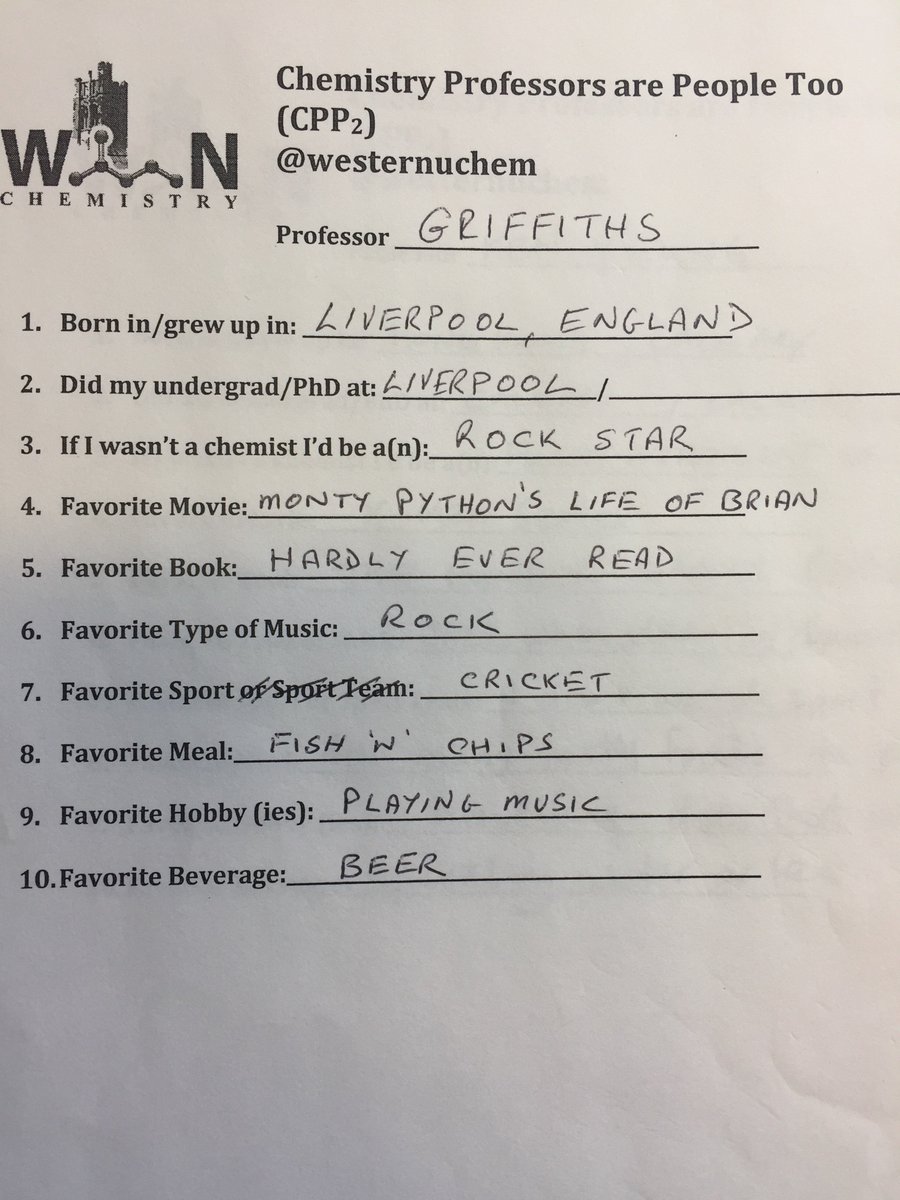 W N
CHEMISTRY
Chemistry Professors are People Too
(CPP₂)
@westernuchem
Professor GRIFFITHS
1. Born in/grew up in: LIVERPOOL, ENGLAND
2. Did my undergrad/PhD at: LIVERPOOL /
3. If I wasn't a chemist I'd be a(n): ROCK STAR
4. Favorite Movie: MONTY PYTHON'S LIFE OF BRIAN
5. Favorite Book: HARDLY EVER READ
6. Favorite Type of Music: ROCK
7. Favorite Sport or Sport Team: CRICKET
8. Favorite Meal: FISH 'N' CHIPS
9. Favorite Hobby (ies): PLAYING MUSIC
10. Favorite Beverage: BEER